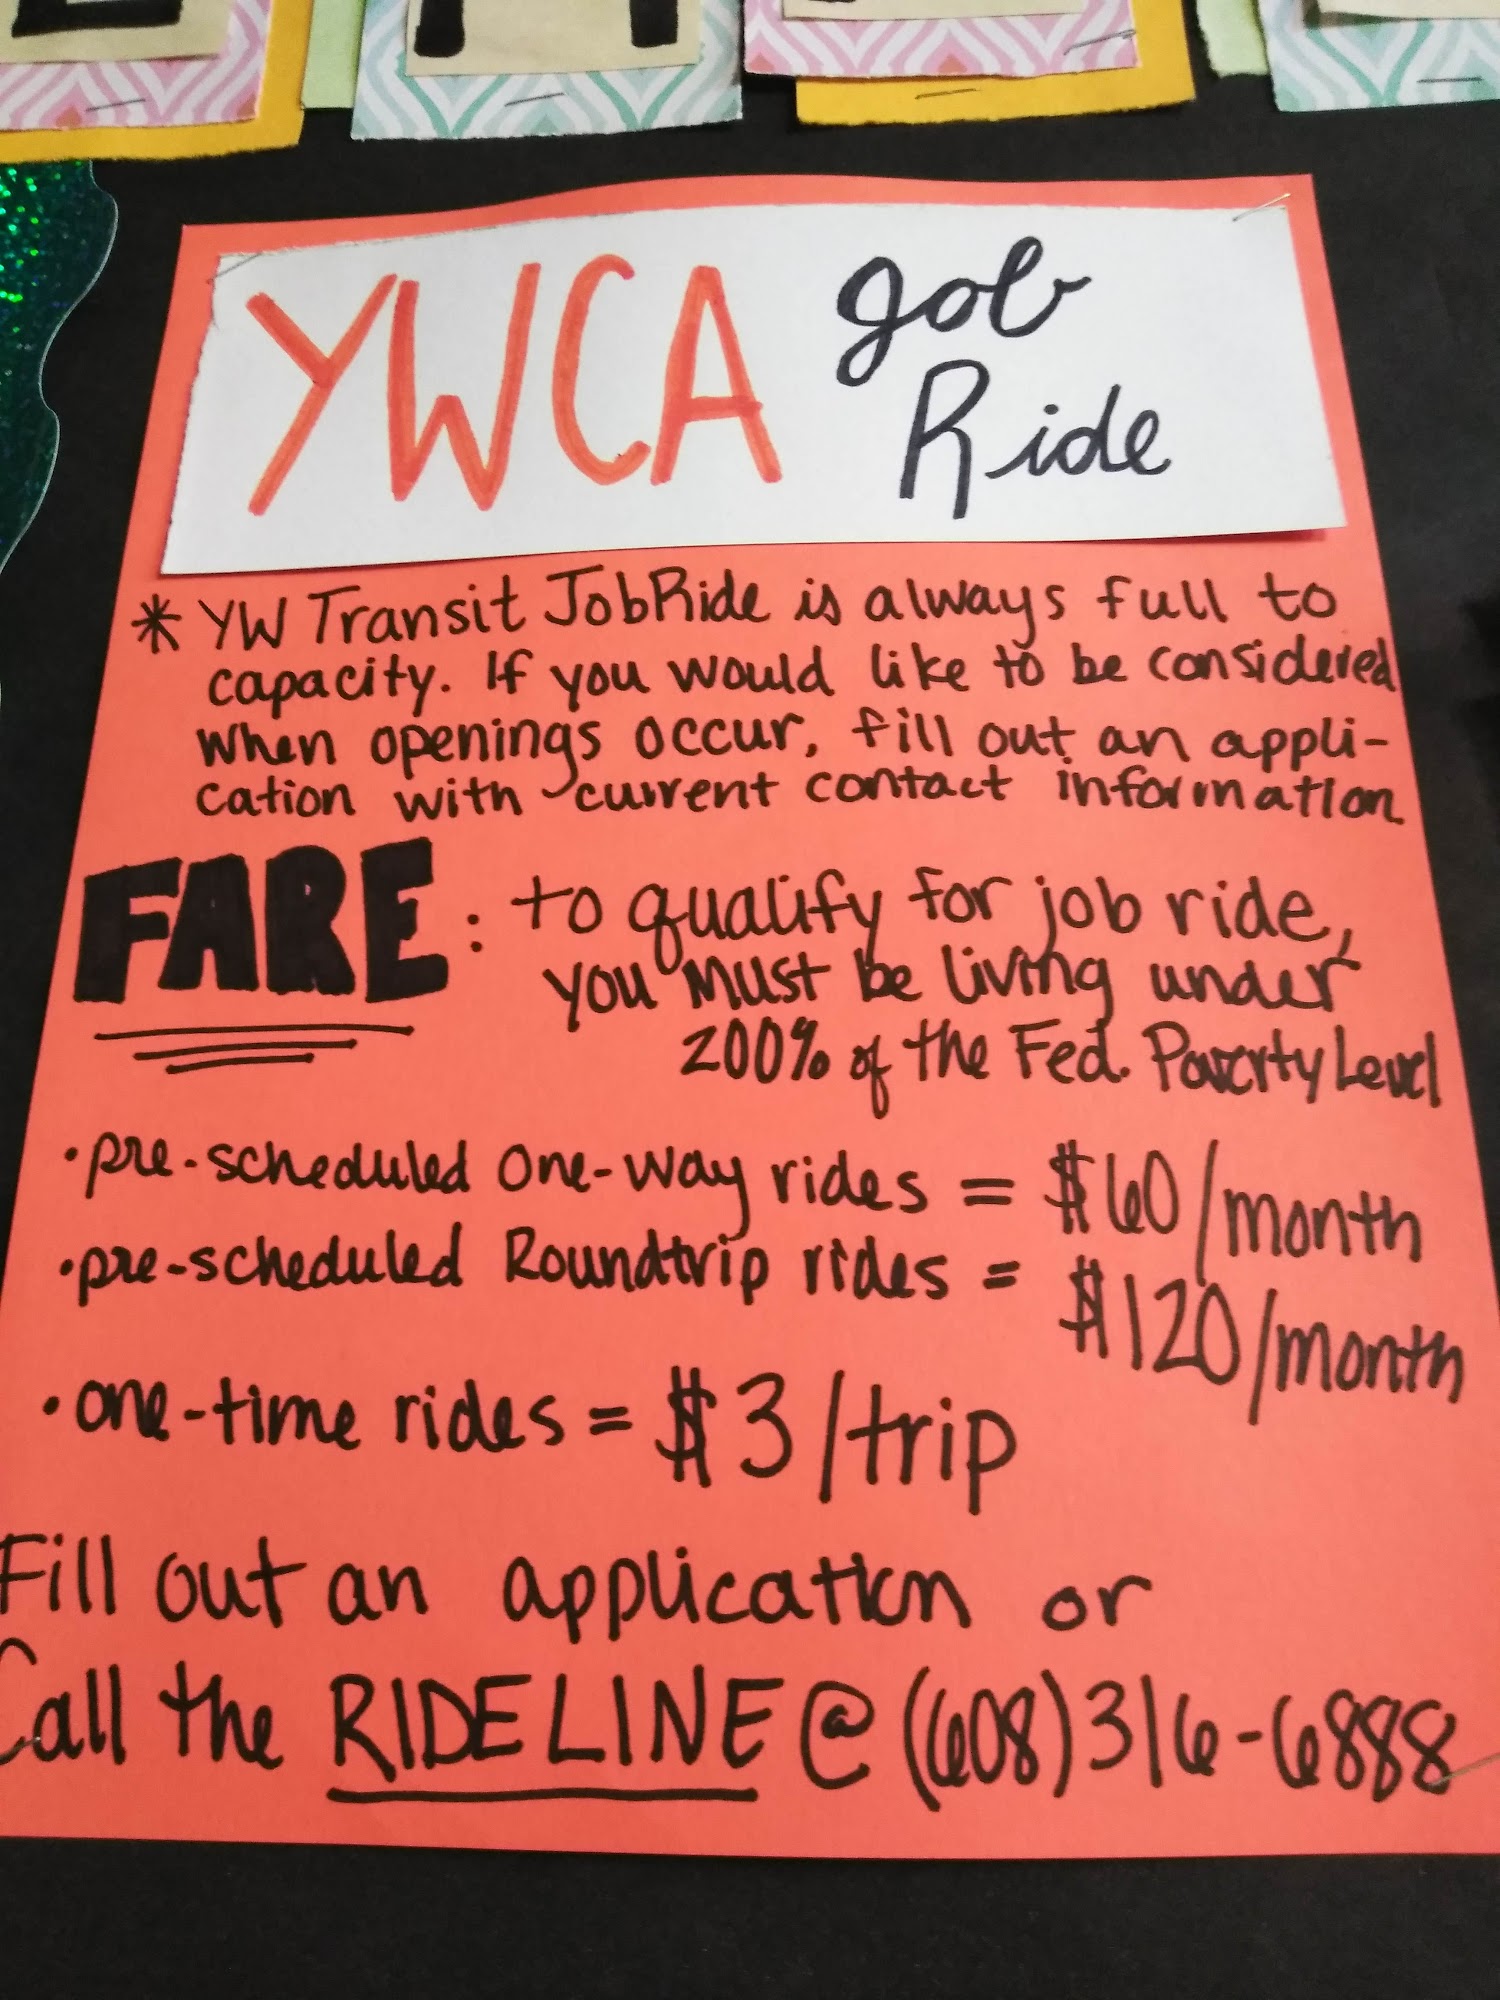 YWCA Job
Ride
* YW Transit JobRide is always full to
capacity. If you would like to be considered
when openings occur, fill out an appli-
cation with current contact information
FARE: to qualify for job ride,
you must be living under
200% of the Fed. Poverty Level
• pre-scheduled one-way rides = $60/month
• pre-scheduled Roundtrip rides = $120/month
• one-time rides = $3/trip
Fill out an application or
Call the RIDELINE @ (608)316-6888